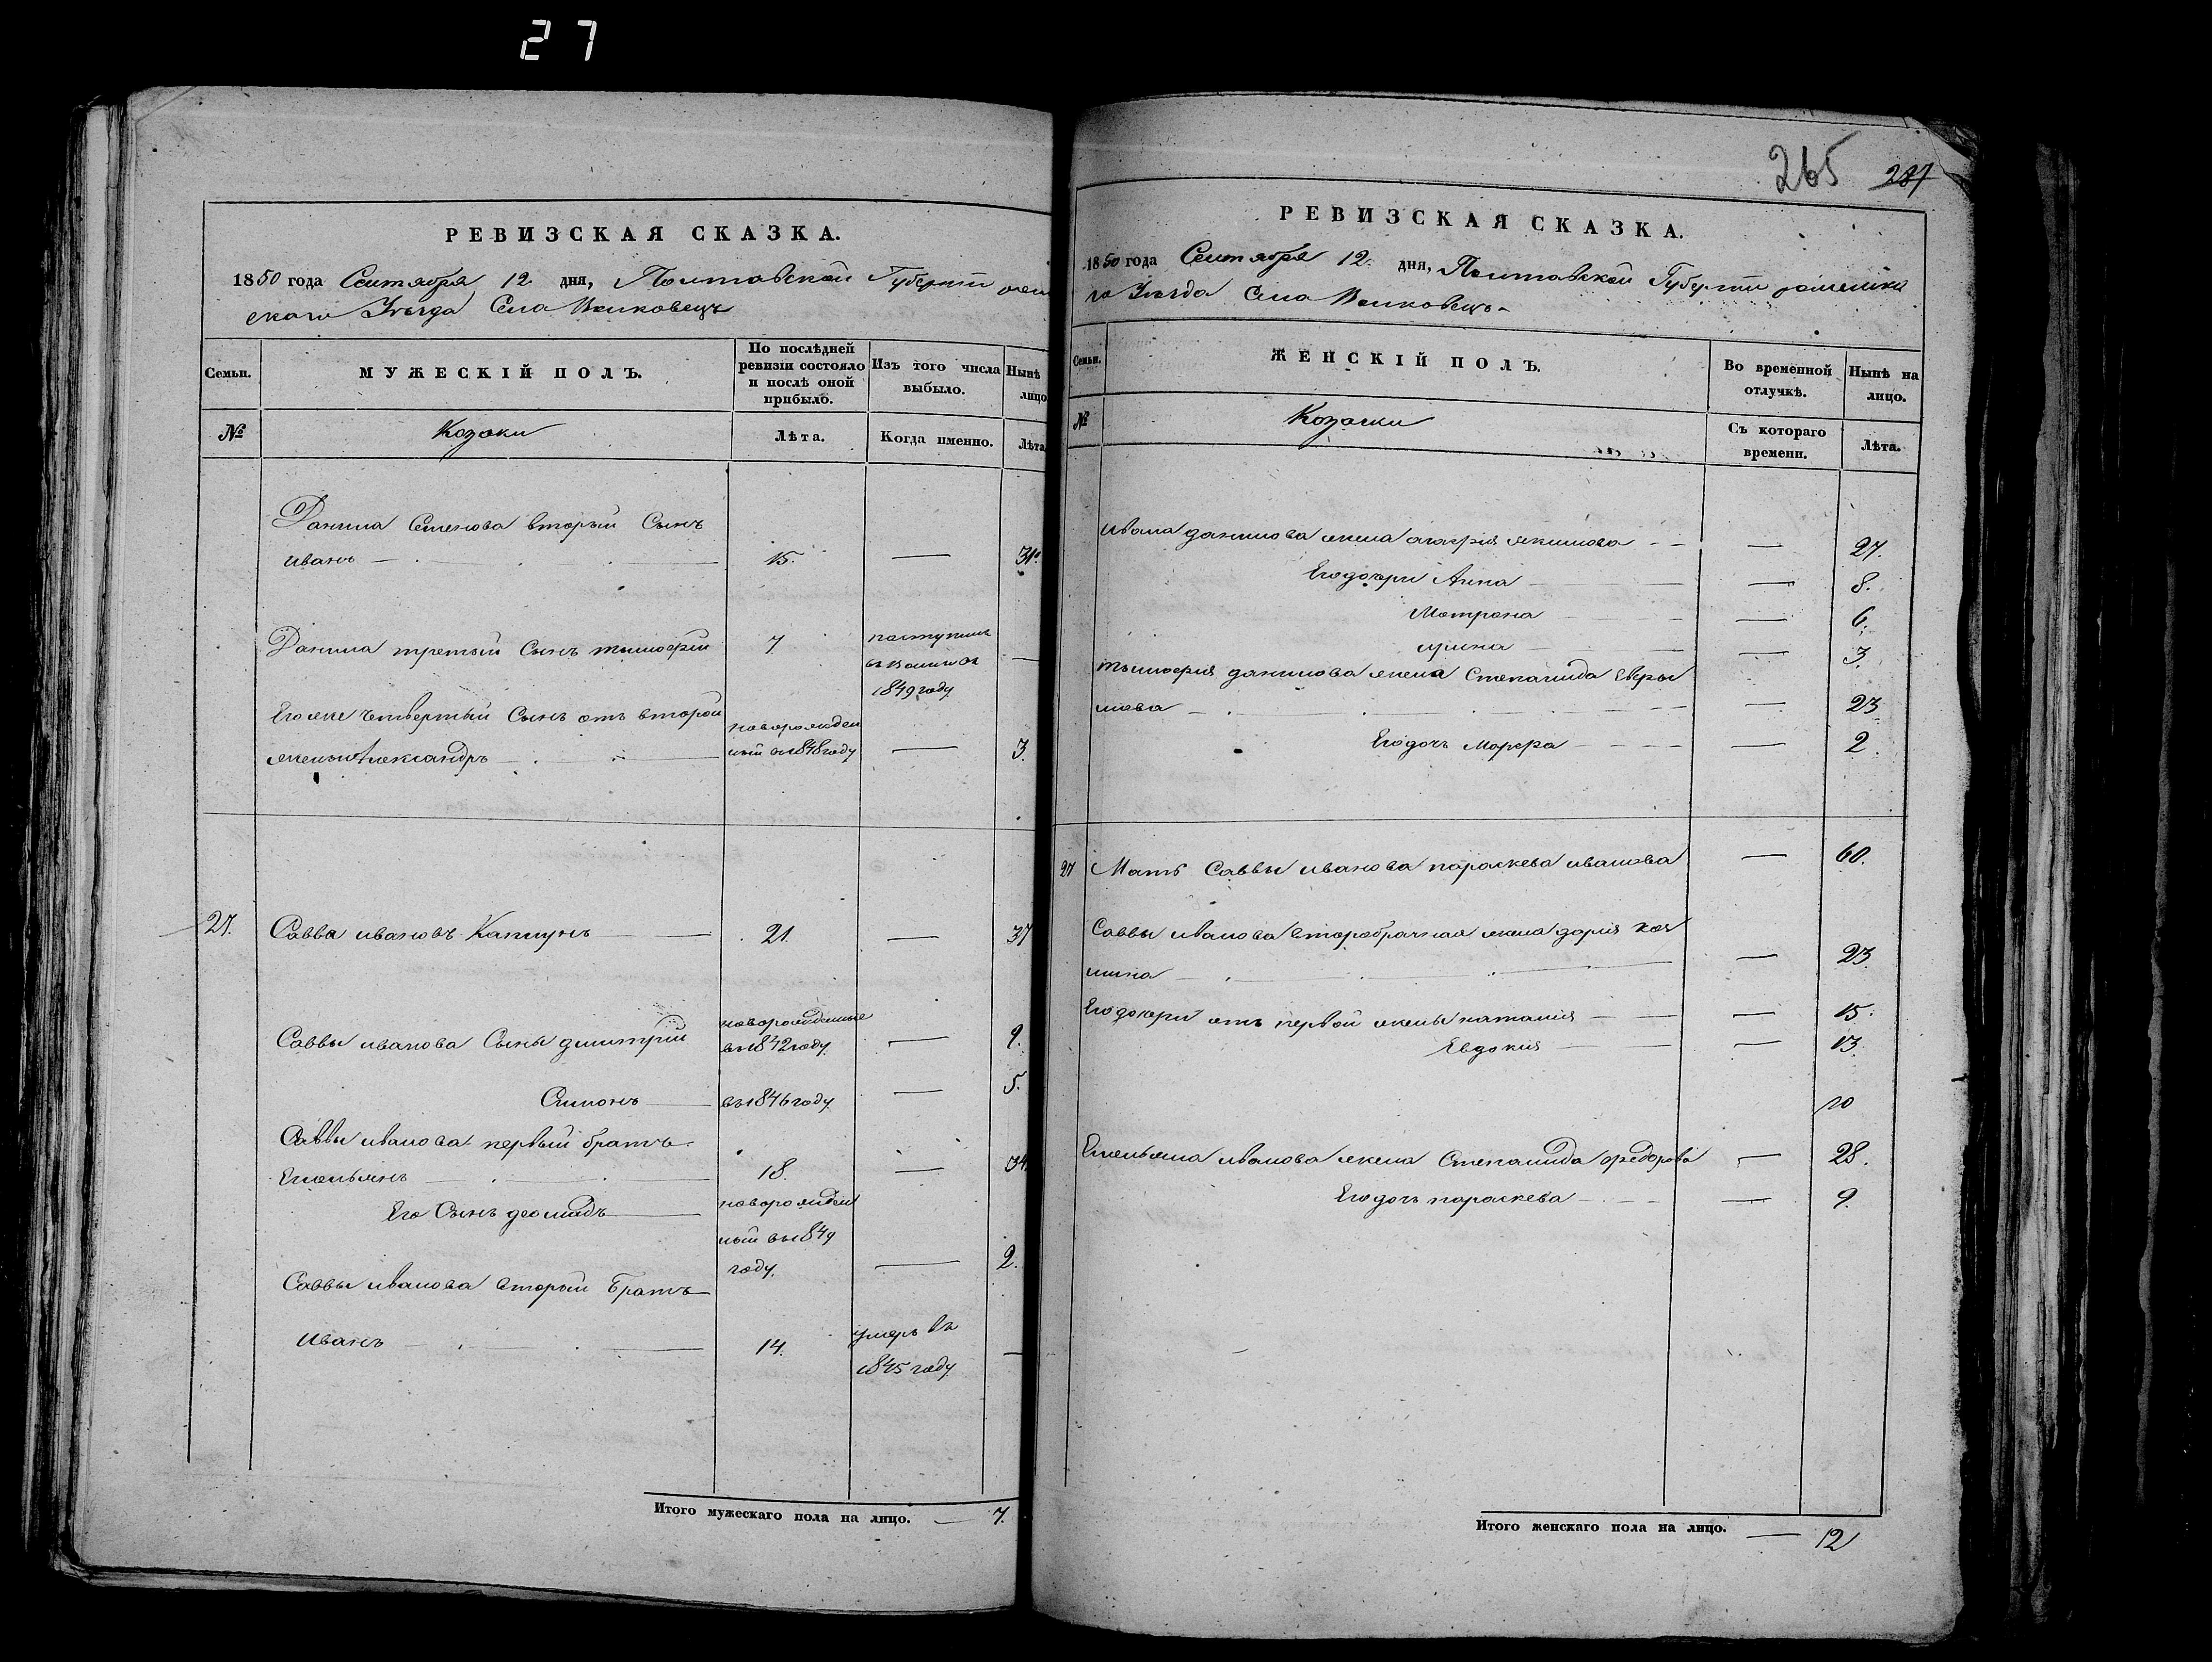 27
РЕВИЗСКАЯ СКАЗКА.
1850 года Сентября 12 дня, Полтавской Губернии
скаго Уѣзда Села Волковецъ
Семьи.
МУЖЕСКІЙ ПОЛЪ.
По послѣдней ревизіи состояло и послѣ оной прибыло.
Изъ того числа выбыло.
Нынѣ лицо
№
Козаки
Лѣта.
Когда именно.
Лѣта
Данила Семенова вторый Сынъ
иванъ — 15. — 31.
Данила третый Сынъ тимофей 7 поступилъ
1849 году —
Его же четвертый Сынъ отъ второй новорожден
жены Александръ — ный въ 1848 году — 3.
27. Савва ивановъ Каплунъ — 21. — 37
Саввы иванова Сыны дмитрій новорожденные
въ 1842 году — 9.
Симонъ — въ 1846 году — 5.
Саввы иванова первый братъ
Емельянъ — 18. — 34.
Его Сынъ деомидъ — новорожден
ный въ 1849
году. — 2.
Саввы иванова вторый братъ
иванъ — 14. умеръ въ —
1845 году
Итого мужескаго пола на лицо. — 7.
265 287
РЕВИЗСКАЯ СКАЗКА.
1850 года Сентября 12 дня, Полтавской Губерніи роменска
го Уѣзда Села Волковецъ
Семьи.
ЖЕНСКІЙ ПОЛЪ.
Во временной отлучкѣ.
Нынѣ на лицо.
№
Козачки
Съ котораго времени.
Лѣта.
ивана данилова жена агафия якимова — — 27.
Его дочери Анна — — 8.
Мотрона — 6.
ирина — — 3.
тимофея данилова жена Степанида
— — 23
Его дочь Марфа — — 2.
27 Мать Саввы иванова параскева иванова — 60.
Саввы иванова второбрачная жена дария
— — 23.
Его дочери отъ первой жены наталия — — 15.
Евдокия — — 13.
Емельяна иванова жена Степанида федорова — 28.
Его дочь параскева — — 9.
Итого женскаго пола на лицо. — 12